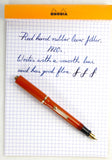 RHODIA
Red hard rubber lever filler,
1920s.
Writes with a smooth line
and has good flow. f f f